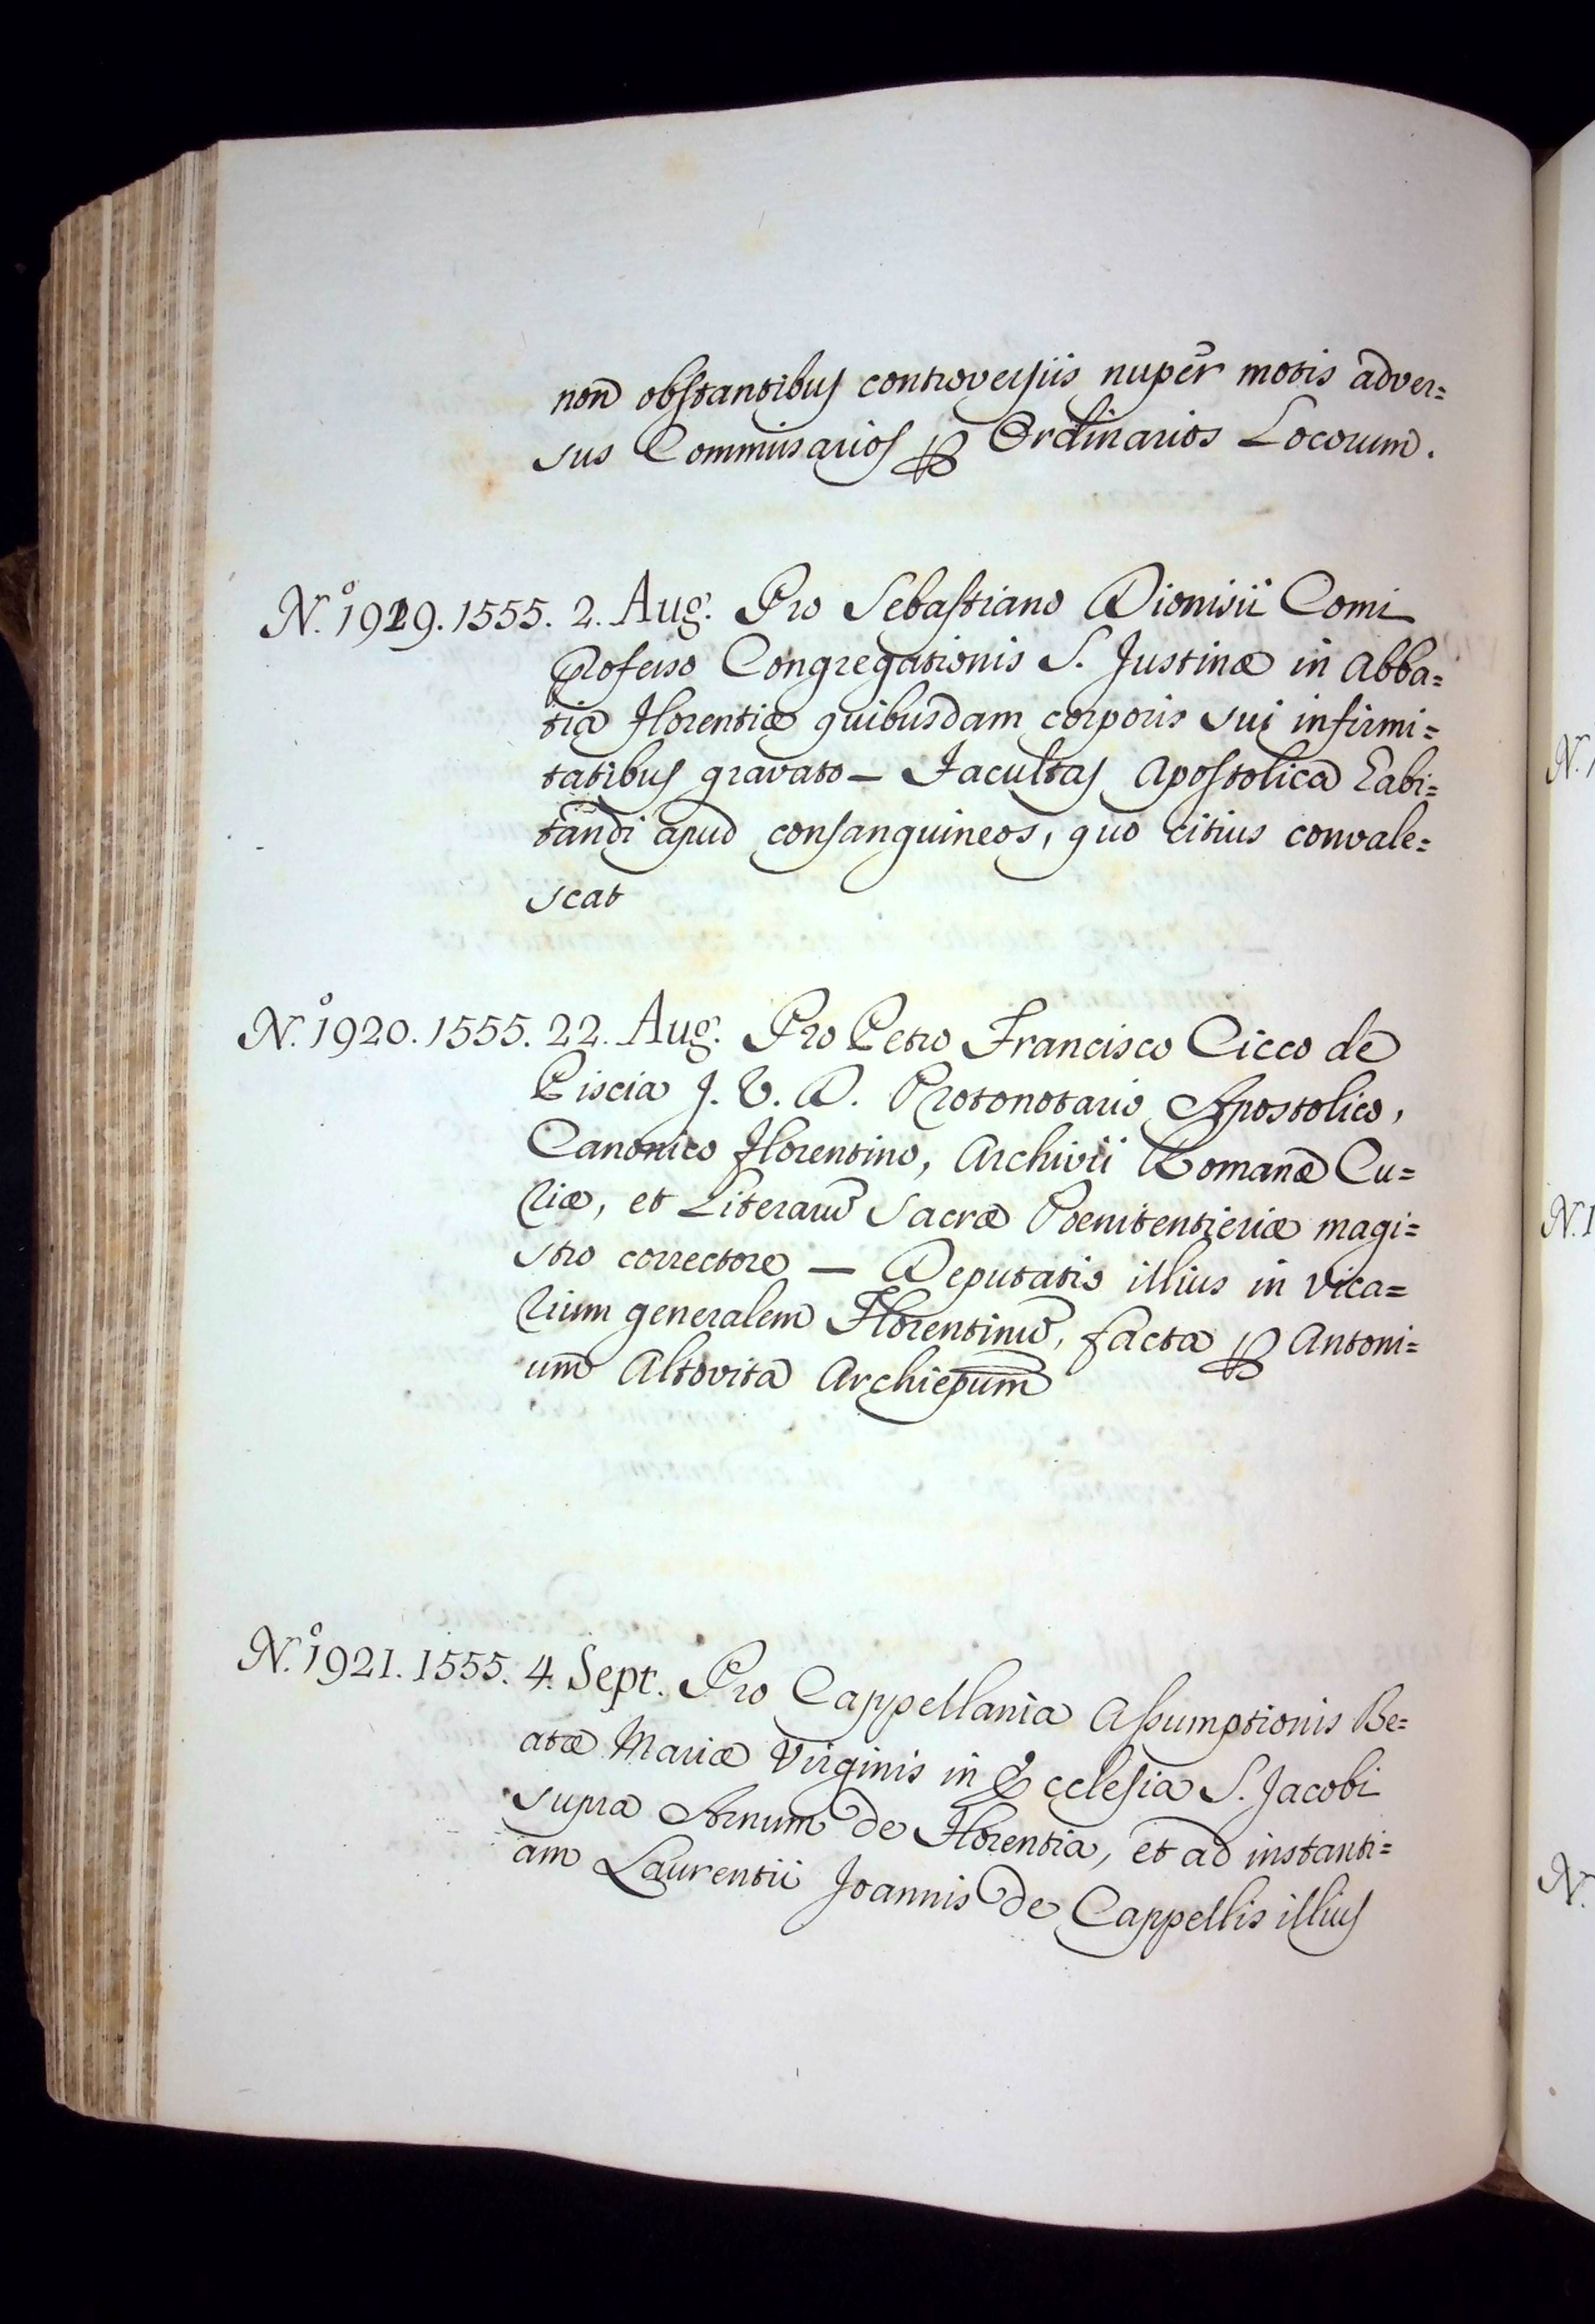 non obstantibus controversiis nuper motis adver=
sus Commissarios ꝑ Ordinarios Locorum.
N.º 1919. 1555. 2. Aug. Pro Sebastiano Dionisii Comi
Professo Congregationis S. Justinæ in Abba=
tia Florentiæ quibusdam corporis sui infirmi=
tatibus gravato — Facultas Apostolica Habi=
tandi apud consanguineos, quo citius convale=
scat
N.º 1920. 1555. 22. Aug. Pro Petro Francisco Cicco de
Piscia J. V. D. Protonotario Apostolico,
Canonico Florentino, Archivii Romanæ Cu=
riæ, et Literarũ Sacræ Poenitentieriæ magi=
stro correctore — Deputatio illius in Vica=
rium generalem Florentinũ, facta ꝑ Antoni=
um Altovita Archiepũm
N.º 1921. 1555. 4. Sept. Pro Cappellania Assumptionis Be=
atæ Mariæ Virginis in Ecclesia S. Jacobi
supra Arnum de Florentia, et ad instanti=
am Laurentii Joannis de Cappellis illius
N.1
N.1
N.